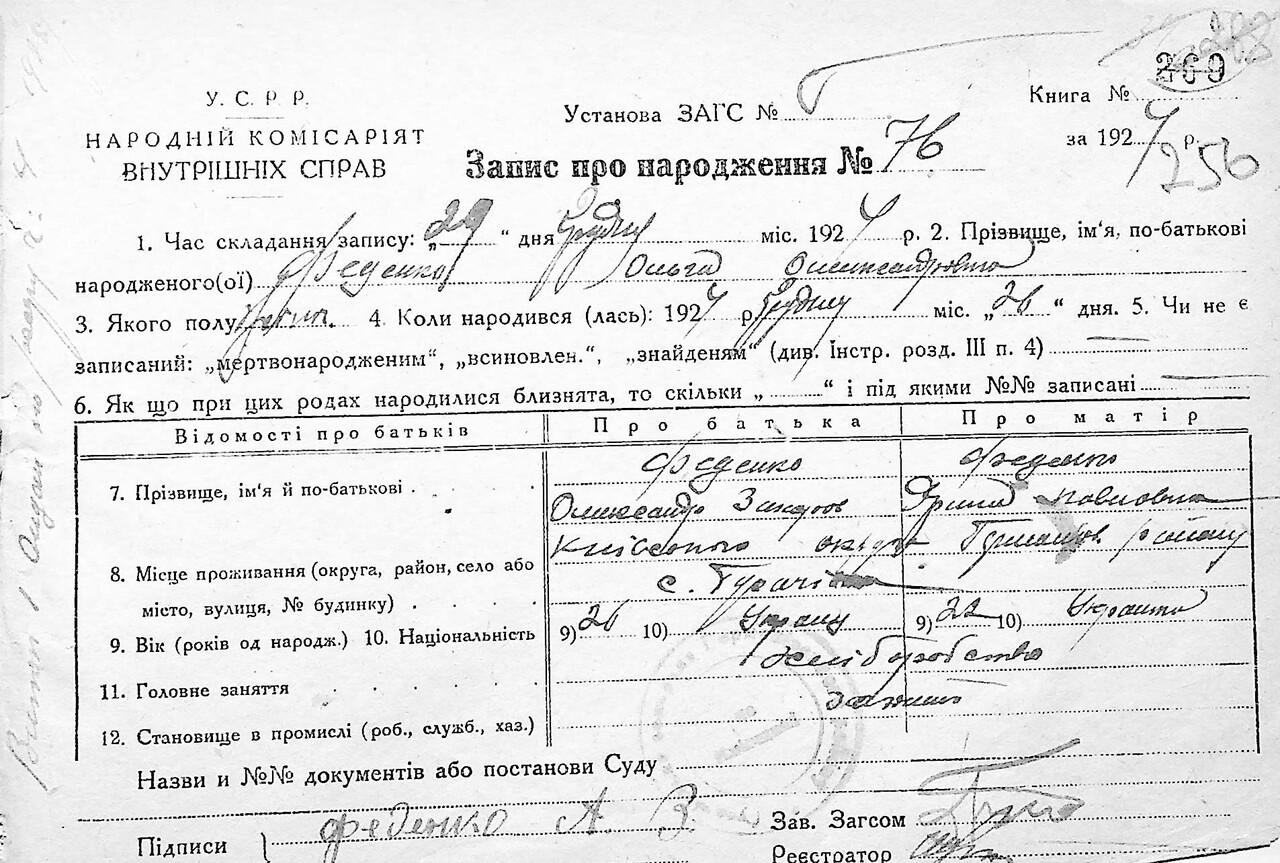 269
У. С. Р. Р.
НАРОДНІЙ КОМІСАРІЯТ
ВНУТРІШНІХ СПРАВ
Установа ЗАГС №
Книга №
за 1927 р.
256
Запис про народження № 76
1. Час складання запису: „29“ дня Грудня міс. 1927 р. 2. Прізвище, ім'я, по-батькові
народженого(ої) Феденко Ольга Олександровна
3. Якого полу жін. 4. Коли народився (лась): 1927 р. Грудня міс. „26“ дня. 5. Чи не є
записаний: „мертвонародженим“, „всиновлен.“, „знайденям“ (див. Інстр. розд. III п. 4)
6. Як що при цих родах народилися близнята, то скільки „ “ і під якими №№ записані
Відомості про батьків Про батька Про матір
Феденко Феденко
7. Прізвище, ім'я й по-батькові
Олександр Захаров Ярина Павловна
Київського округу району
8. Місце проживання (округа, район, село або
с.
місто, вулиця, № будинку)
9. Вік (років од народж.) 10. Національність 9) 26 10) Українц 9) 22 10) Украинка
хліборобство
11. Головне заняття
12. Становище в промислі (роб., служб., хаз.)
Назви и №№ документів або постанови Суду
Підписи Феденко А. З. Зав. Загсом
Реєстратор